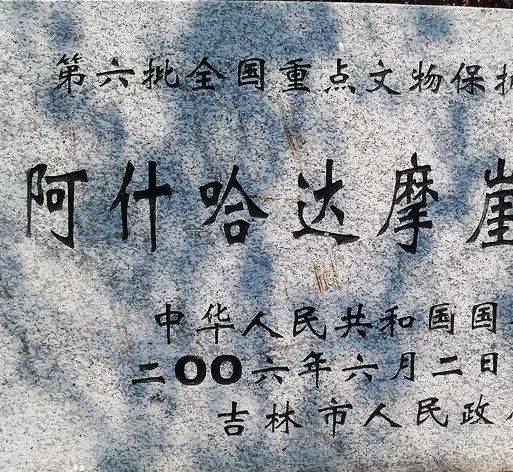 第六批全国重点文物保护
阿什哈达摩崖
中华人民共和国国
二〇〇六年六月二日
吉林市人民政